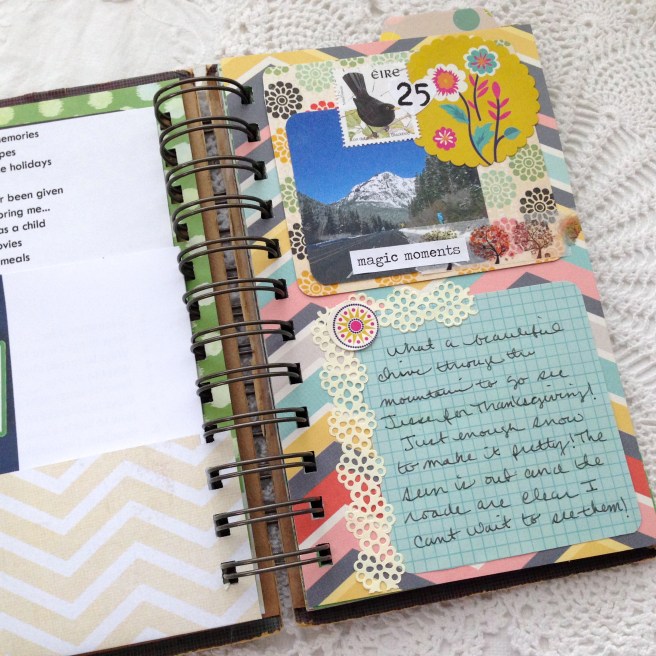 emories
pes
e holidays
r been given
oring me...
as a child
ovies
meals
éire
25
magic moments
What a beautiful
drive through the
mountain to go see
Jesse for Thanksgiving!
Just enough snow
to make it pretty! The
sun is out and the
roads are clear I
cant wait to see them!